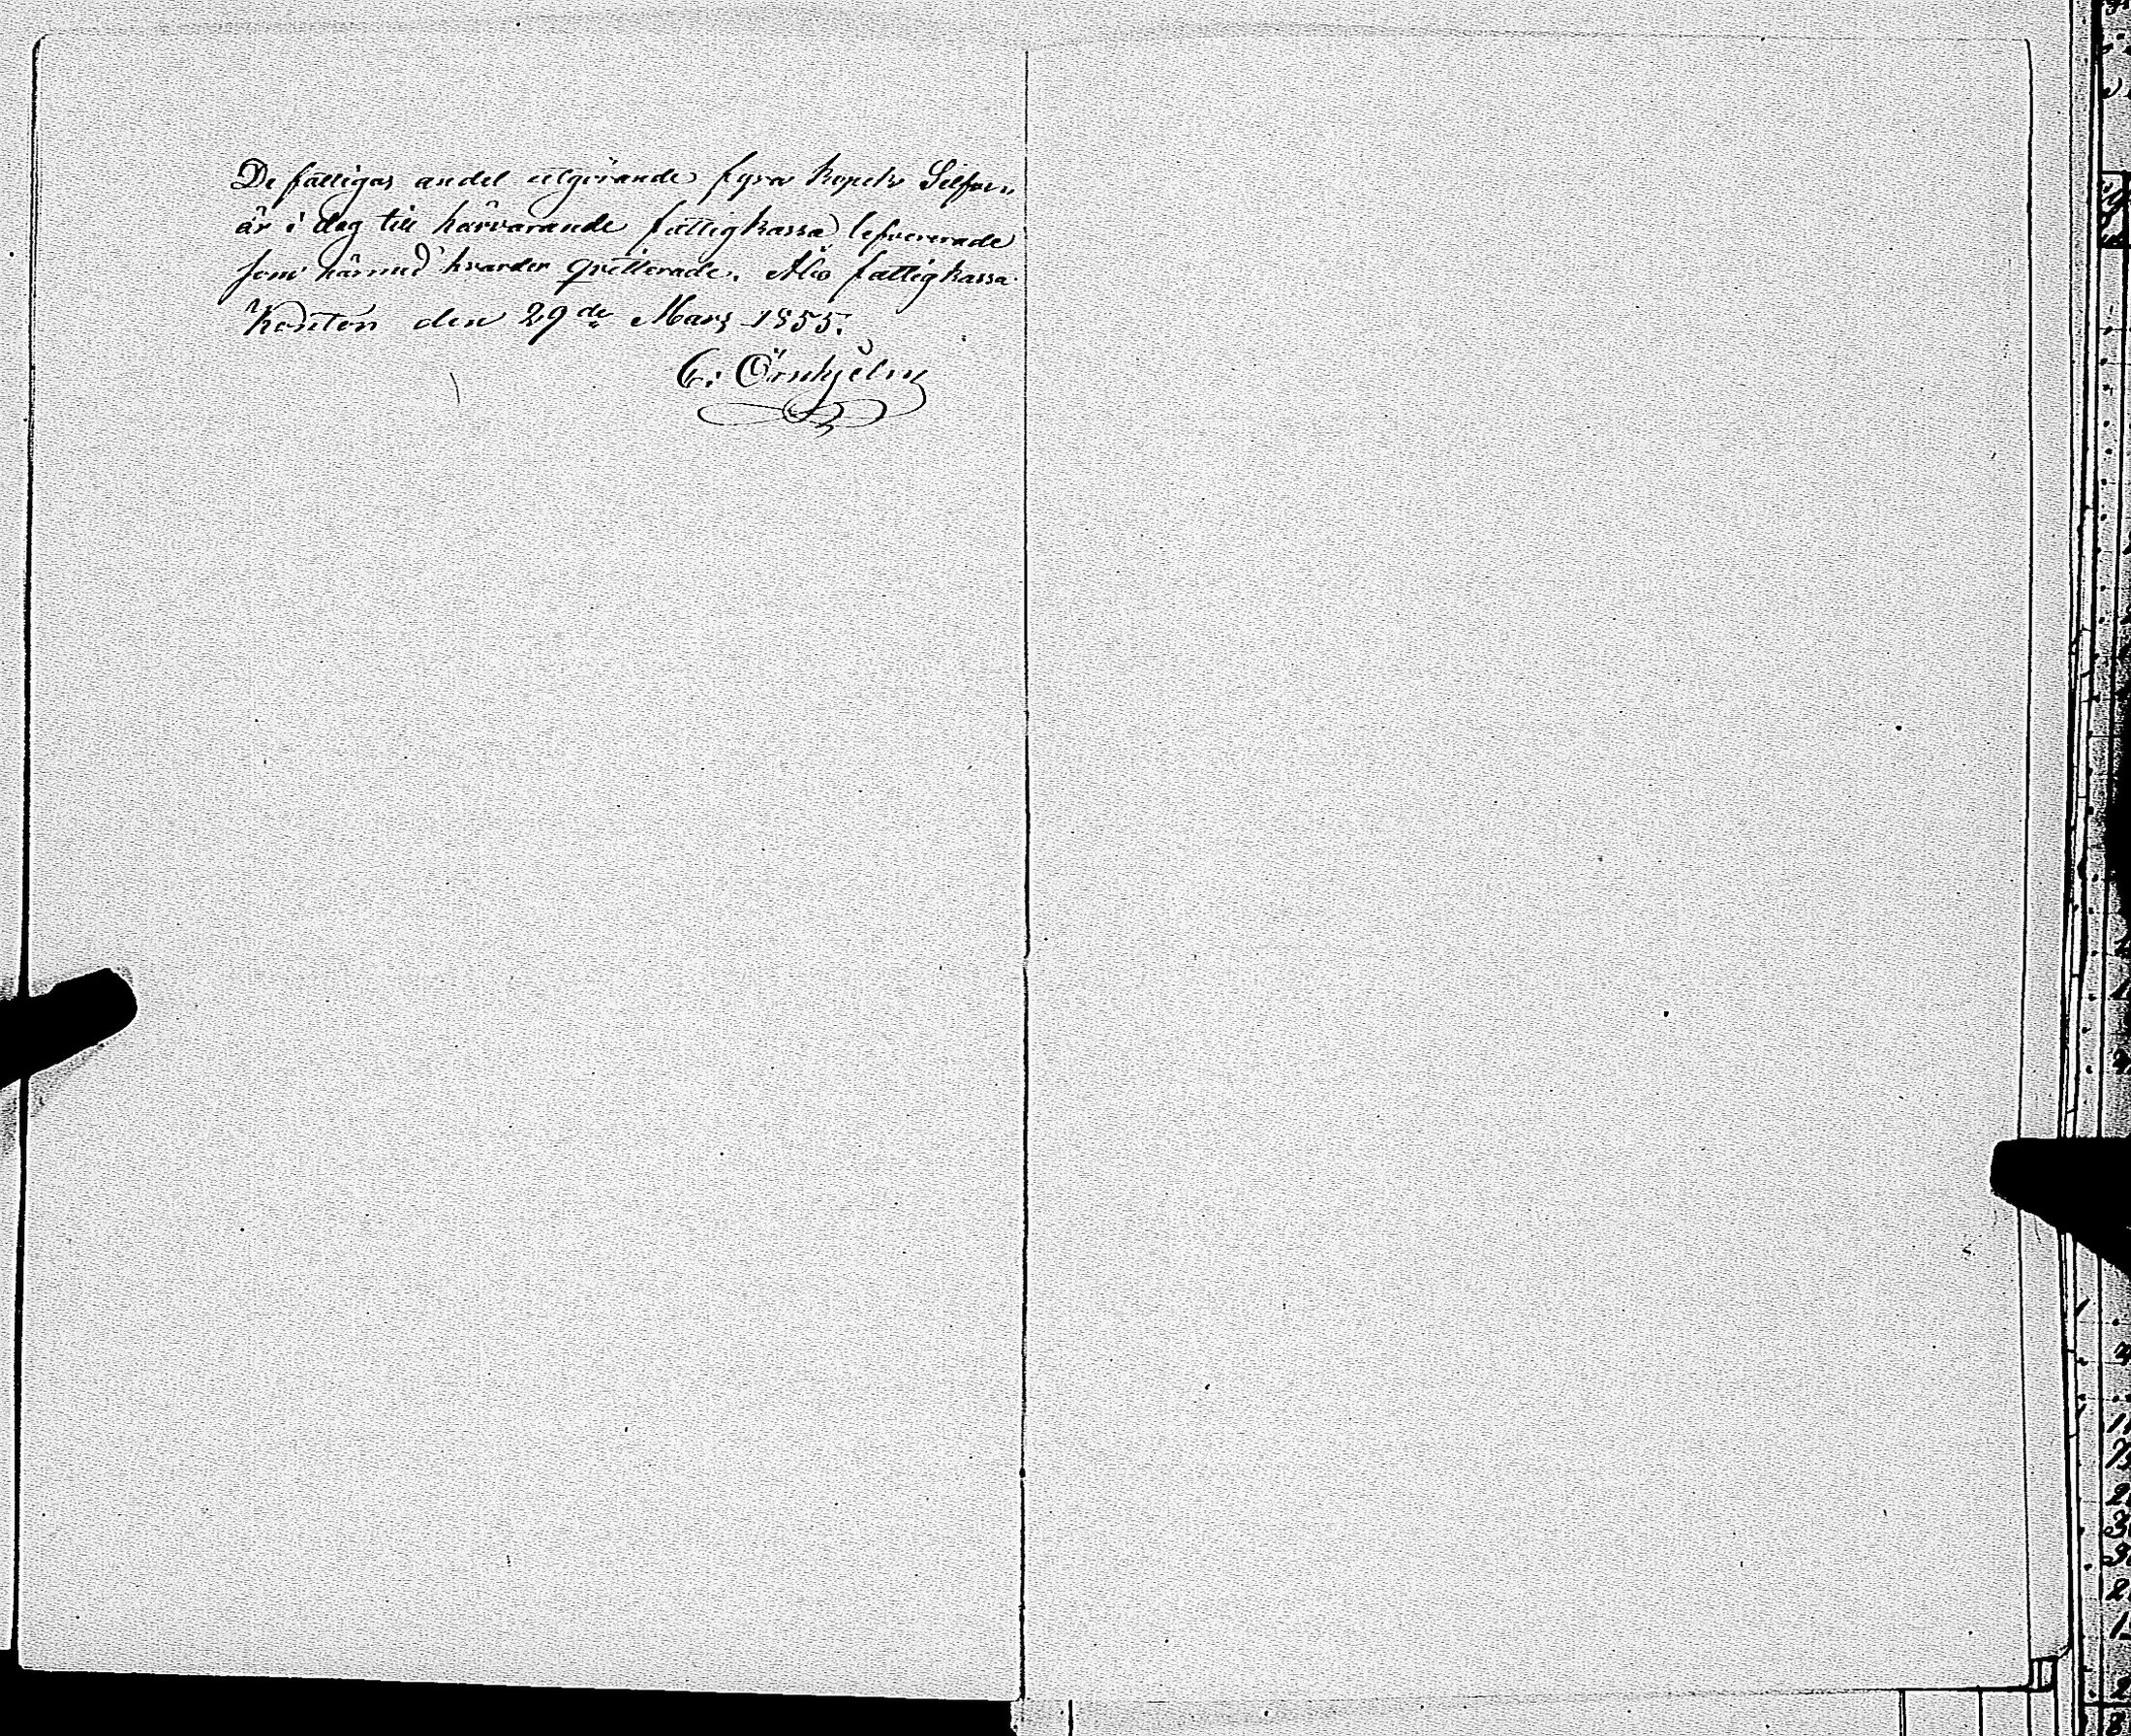 De fattigas andel utgörande fyra kopek Silfver,
är i dag till härvarande fattigkassa lefvererade
som härmed hvarder qvitterade. Åbo fattigkassa
Kontor den 29de Mars 1855.
C. Örnhjelm